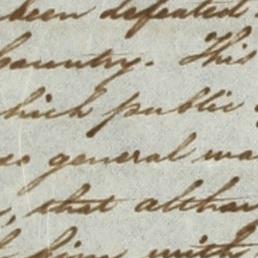 been defeated
Country. This
which public
general wa
, that altho
him with